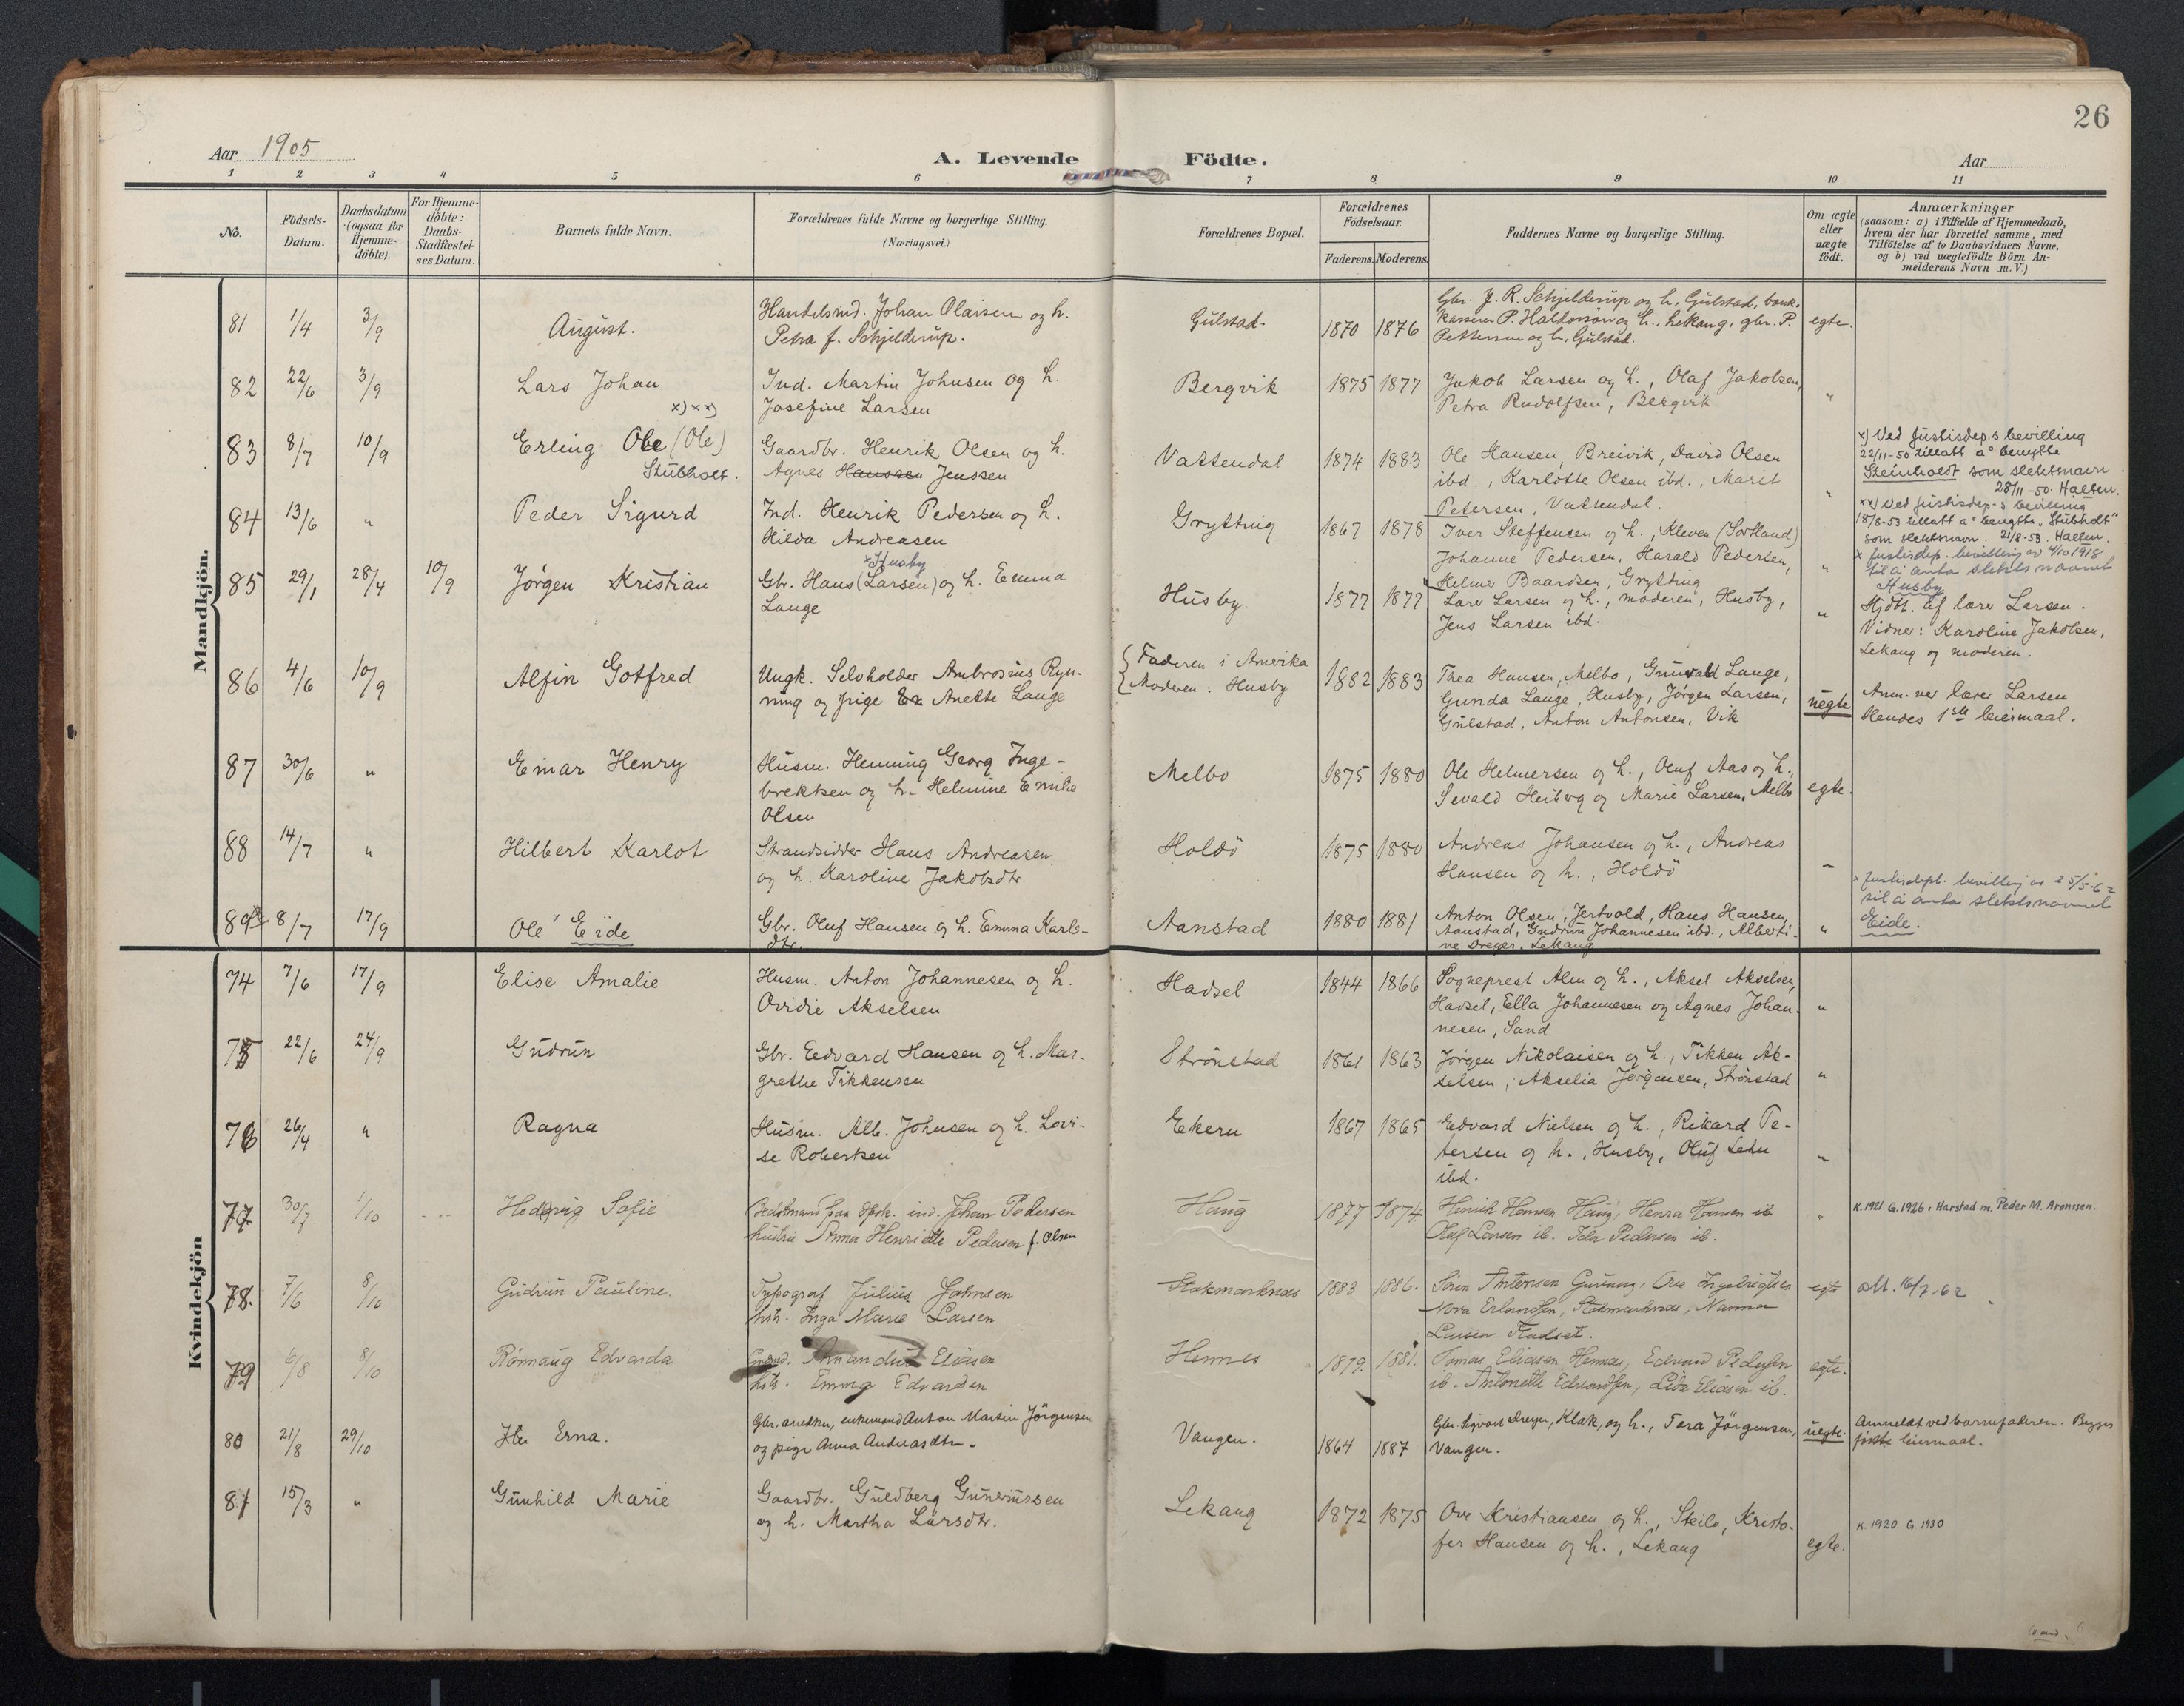 26
Aar 1905
A. Levende Födte.
Aar
1 2 3 4 5 6 7 8 9 10 11
No.
Födsels-Datum.
Daabsdatum (ogsaa for Hjemme-döbte).
For Hjemme-döbte: Daabs-Stadfæstel-ses Datum.
Barnets fulde Navn.
Forældrenes fulde Navne og borgerlige Stilling.
(Næringsvei.)
Forældrenes Bopæl.
Forældrenes Födselsaar.
Faderens. Moderens.
Faddernes Navne og borgerlige Stilling.
Om ægte eller uægte födt.
Anmærkninger
(saasom: a) i Tilfælde af Hjemmedaab,
hvem der har forrettet samme, med
Tilföielse af to Daabsvidners Navne,
og b) ved uægtefödte Börn An-
melderens Navn m. V.)
Mandkjön.
81 1/4 3/9 August. Handelsmd. Johan Olaisen og h. Gulstad. 1870 1876 Gbr. J. R. Schjelderup og h., Gulstad, bank- egte.
Petra f. Schjelderup. kasserer P. Haldorsön og h., Lekang, gbr. P.
Pettersen og h. Gulstad.
82 22/6 3/9 Lars Johan Ind. Martin Johnsen og h. Bergvik 1875 1877 Jakob Larsen og h., Olaf Jakobsen, "
Josefine Larsen Petra Rudolfsen, Bergvik
x) xx)
83 8/7 10/9 Erling Obe (Ole) Gaardbr. Henrik Olsen og h. Vattendal 1874 1883 Ole Hansen, Breivik, David Olsen
Stubholt. Agnes Hanssen Jenssen ibd., Karlotte Olsen ibd., Marit "
Petersen, Vattendal.
x) Ved Justisdep.s bevilling
22/11-50 tillatt å benytte
Steinholdt som slektsnavn.
28/11-50. Halten.
xx) Ved Justisdep-s bevilling
18/8-53 tillatt å benytte "Stubholt"
som slektsnavn. 21/8-53. Halten.
84 13/6 " Peder Sigurd Ind. Henrik Pedersen og h. Grytting 1867 1878 Iver Steffensen og h., Kleven (Sortland)
Hilda Andreasen Johanne Pedersen, Harald Pedersen, "
Helmer Baardsen, Grytting
x Justisdep. bevilling av 4/10 1918
til å anta slektsnavnet
Husby
x Husby
85 29/1 28/4 10/9 Jørgen Kristian Gbr. Hans (Larsen) og h. Emma Husby 1877 1877 Lærer Larsen og h., moderen, Husby, "
Lange Jens Larsen ibd.
Hjdt. af lærer Larsen.
Vidner: Karoline Jakobsen,
Lekang og moderen.
86 4/6 10/9 Alfin Gotfred Ungk. Selvholder Ambrosius Ryn- Faderen i Amerika 1882 1883 Thea Hansen, Melbo, Grunvald Lange,
ning og pige Anette Lange Moderen: Husby Gunda Lange, Husby, Jørgen Larsen, uegte
Gulstad, Anton Antonsen, Vik
Anm. ver lærer Larsen
Hendes 1ste leiermaal.
87 30/6 " Einar Henry Husm. Henning Georg Inge- Melbo 1875 1880 Ole Helmersen og h., Oluf Aas og h.,
brektsen og h. Helmine Emilie Sevald Heiberg og Marie Larsen, Melbo egte.
Olsen
88 14/7 " Hilbert Karlot Strandsidder Hans Andreasen Holdö 1875 1880 Andreas Johansen og h., Andreas
og h. Karoline Jakobsdtr. Hansen og h., Holdö "
x Justisdept. bevilling av 25/5-62
til å anta slektsnavnet
Eide.
89 8/7 17/9 Ole Eide Gbr. Oluf Hansen og h. Emma Karls- Aanstad 1880 1881 Anton Olsen, Jertvold, Hans Hansen, "
dtr. Aanstad, Gudrun Johannesen ibd., Alberti-
ne Dreyer, Lekang
Kvindekjön
74 7/6 17/9 Elise Amalie Husm. Anton Johannesen og h. Hadsel 1844 1866 Sogneprest Alm og h., Aksel Akselsen,
Ovidie Akselsen Hadsel, Ella Johannesen og Agnes Johan- "
nesen, Sand
75 22/6 24/9 Gudrun Gbr. Edvard Hansen og h. Mar- Strönstad 1861 1863 Jørgen Nikolaisen og h., Tikken Ak-
grethe Tikkensen selsen, Akselia Jørgensen, Strönstad "
76 26/4 " Ragna Husm. Alb. Johnsen og h. Lovi- Ekern 1867 1865 Edvard Nielsen og h., Rikard Pe-
se Robertsen tersen og h., Husby, Oluf "
ibd.
77 30/7 1/10 Hedvig Sofie ind. Johan Pedersen Haug 1877 1874 Henrik Hansen Haug, Hanna Hansen ib. "
hustru Anna Henriette Pedersen f. Olsen Olaf Larsen ib. Ida Pedersen ib.
K. 1921 G. 1926 i Harstad m. Peder M. Aronssen.
78. 7/6 8/10 Gudrun Pauline. Typograf Julius Johnsen Stokmarknæs 1883 1886. Sören Antonsen Ove Ingebrigtsen egte att. 16/7.62
hst. Inga Marie Larsen Nora Erlandsen, Stokmarknæs, Nanna
Larsen Hadsel.
79 6/8 8/10 Rönnaug Edvarda Eliasen Hennes 1879. 1881. Tomas Eliasen Hennes, Edvard Pedersen egte.
hst. Emma Edvardsen ib. Antonette Edvardsen, Lida Eliasen ib.
80 21/8 29/10 Erna. Gbr, enkemand Anton Martin Jörgensen Vangen. 1864 1887 Gbr Sigvart Dreyer, Klak, og h., Tora Jörgensen, uegte.
og pige Anna Andreasdtr. Vangen.
Anmeldt ved barnefaderen. Begges
första leiermaal.
81 15/3 " Gunhild Marie Gaardbr. Guldberg Gunerrussen Lekang 1872 1875 Ove Kristiansen og h., Steilo, Kristo-
og h. Martha Larsdtr. fer Hansen og h., Lekang egte.
K. 1920 G. 1930